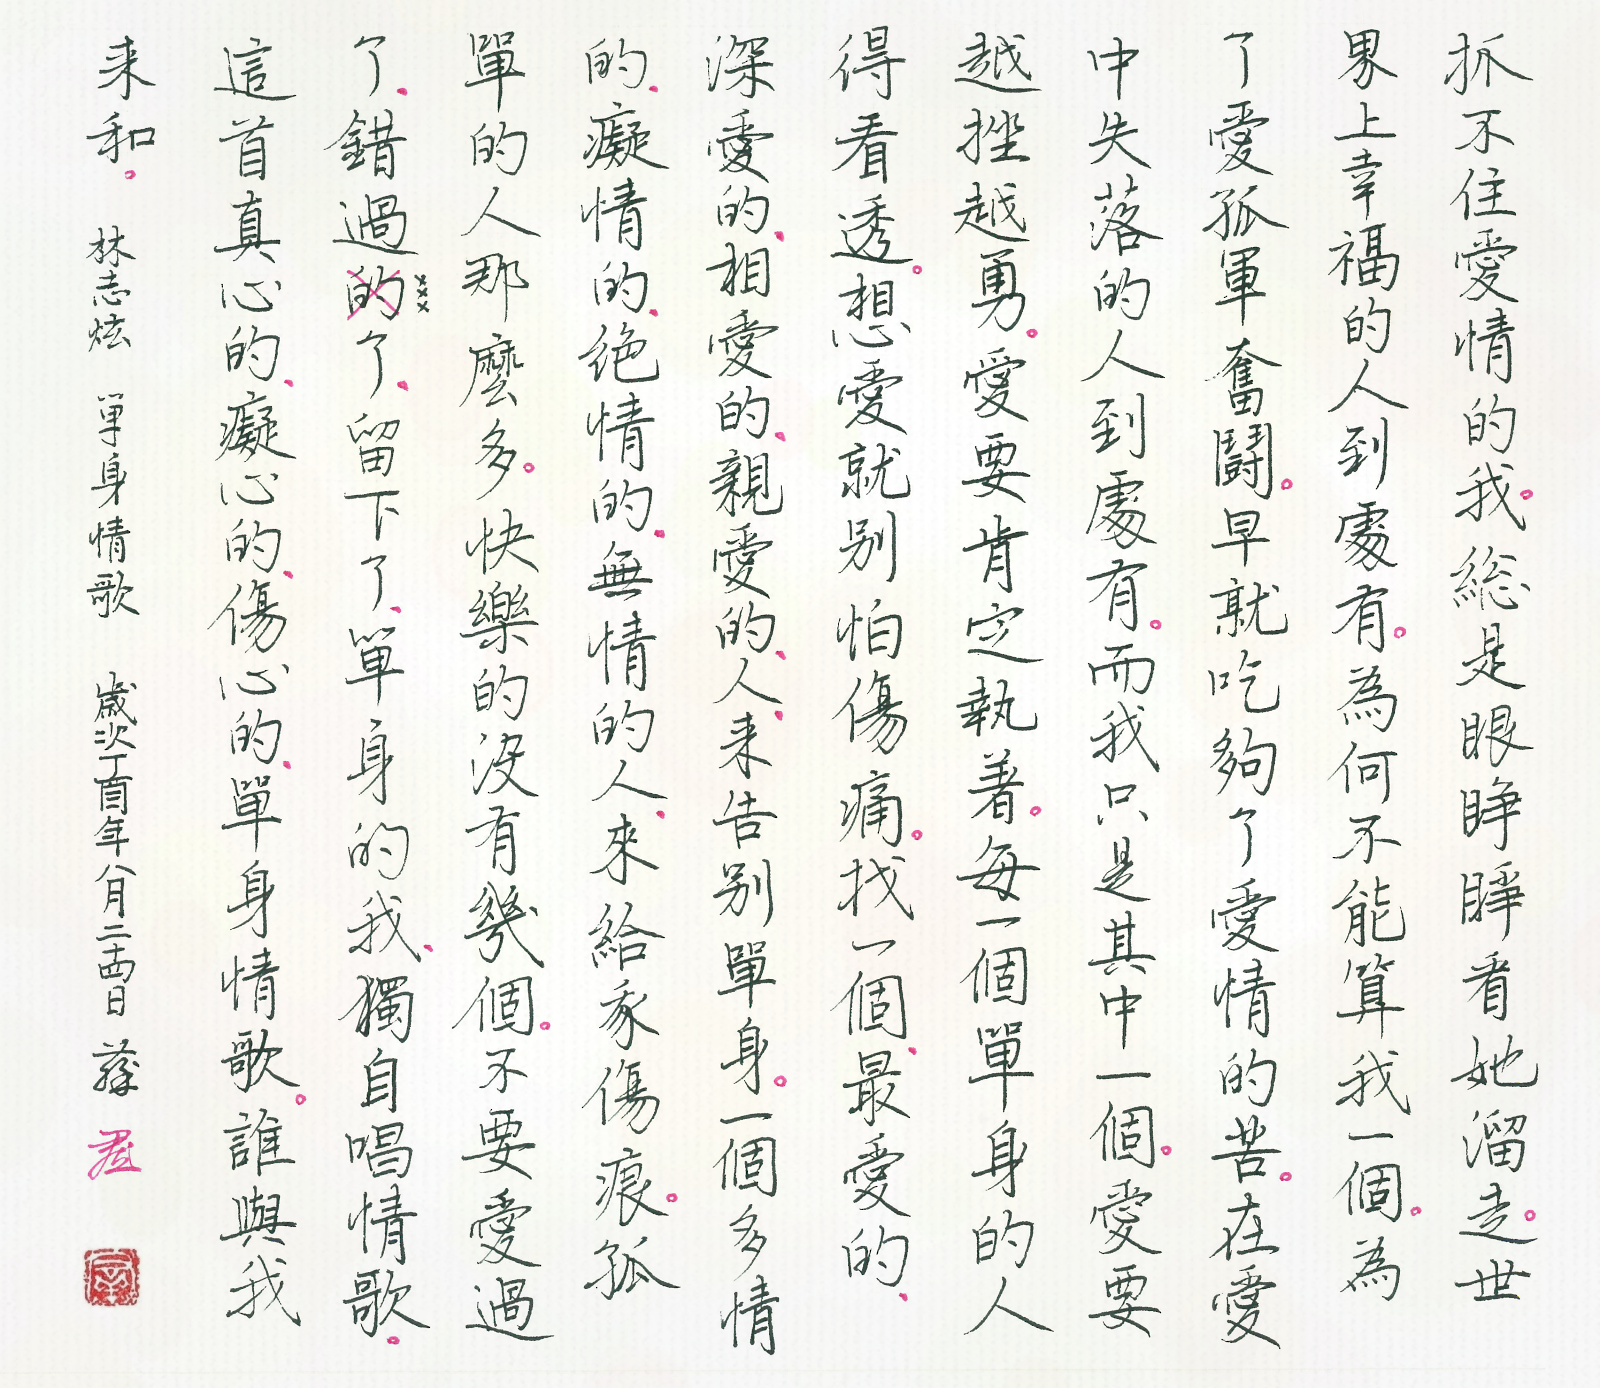 抓不住愛情的我。総是眼睁睜看她溜走。世
界上幸福的人到處有。為何不能算我一個。為
了愛孤軍奮鬪。早就吃夠了愛情的苦。在愛
中失落的人到處有。而我只是其中一個。愛要
越挫越勇。愛要肯定執著。每一個單身的人
得看透。想愛就别怕傷痛。找一個、最愛的、
深愛的、相愛的、親愛的、人、来告别單身。一個多情
的、癡情的、绝情的、無情的人、來給我傷痕。孤
單的人那麼多。快樂的没有幾個。不要愛過
了、錯過的了、留下了、單身的我、獨自唱情歌。
這首真心的、癡心的、傷心的、單身情歌。誰與我
来和。 林志炫 單身情歌 歲次丁酉年八月二十四日